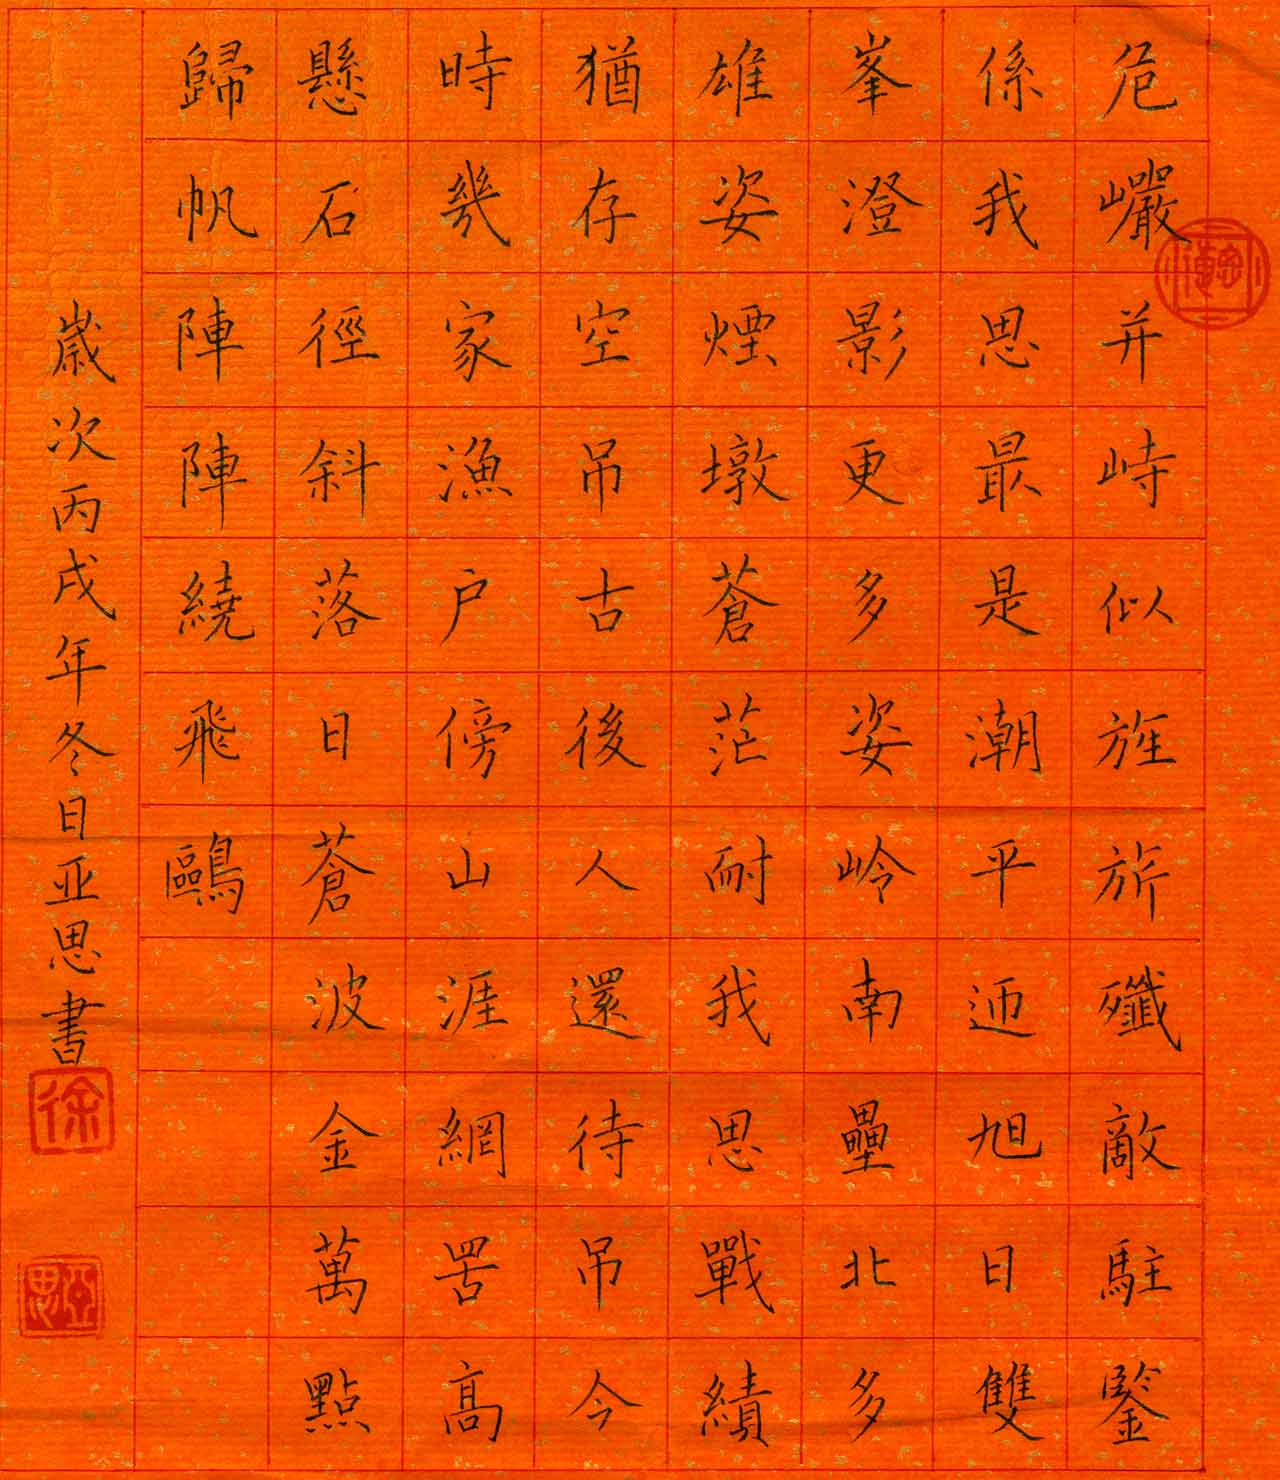 危巖并峙似旌旂殲敵駐鋻
係我思最是潮平迊旭日雙
峯澄影更多姿岭南壘北多
雄姿煙墩蒼茫耐我思戰績
猶存空吊古後人還待吊今
時幾家漁户傍山涯網罟高
懸石徑斜落日蒼波金萬點
歸帆陣陣繞飛鷗
歲次丙戌年冬日亚思書
徐
亞思